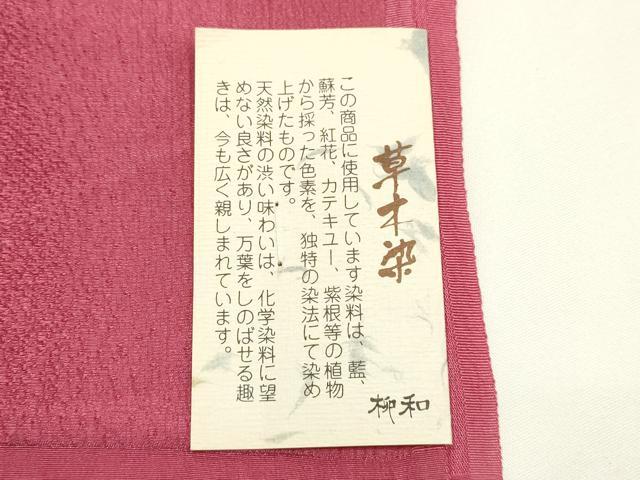 草木染
この商品に使用しています染料は、藍、
蘇芳、紅花、カテキユー、紫根等の植物
から採った色素を、独特の染法にて染め
上げたものです。
天然染料の渋い味わいは、化学染料に望
めない良さがあり、万葉をしのばせる趣
きは、今も広く親しまれています。
柳和